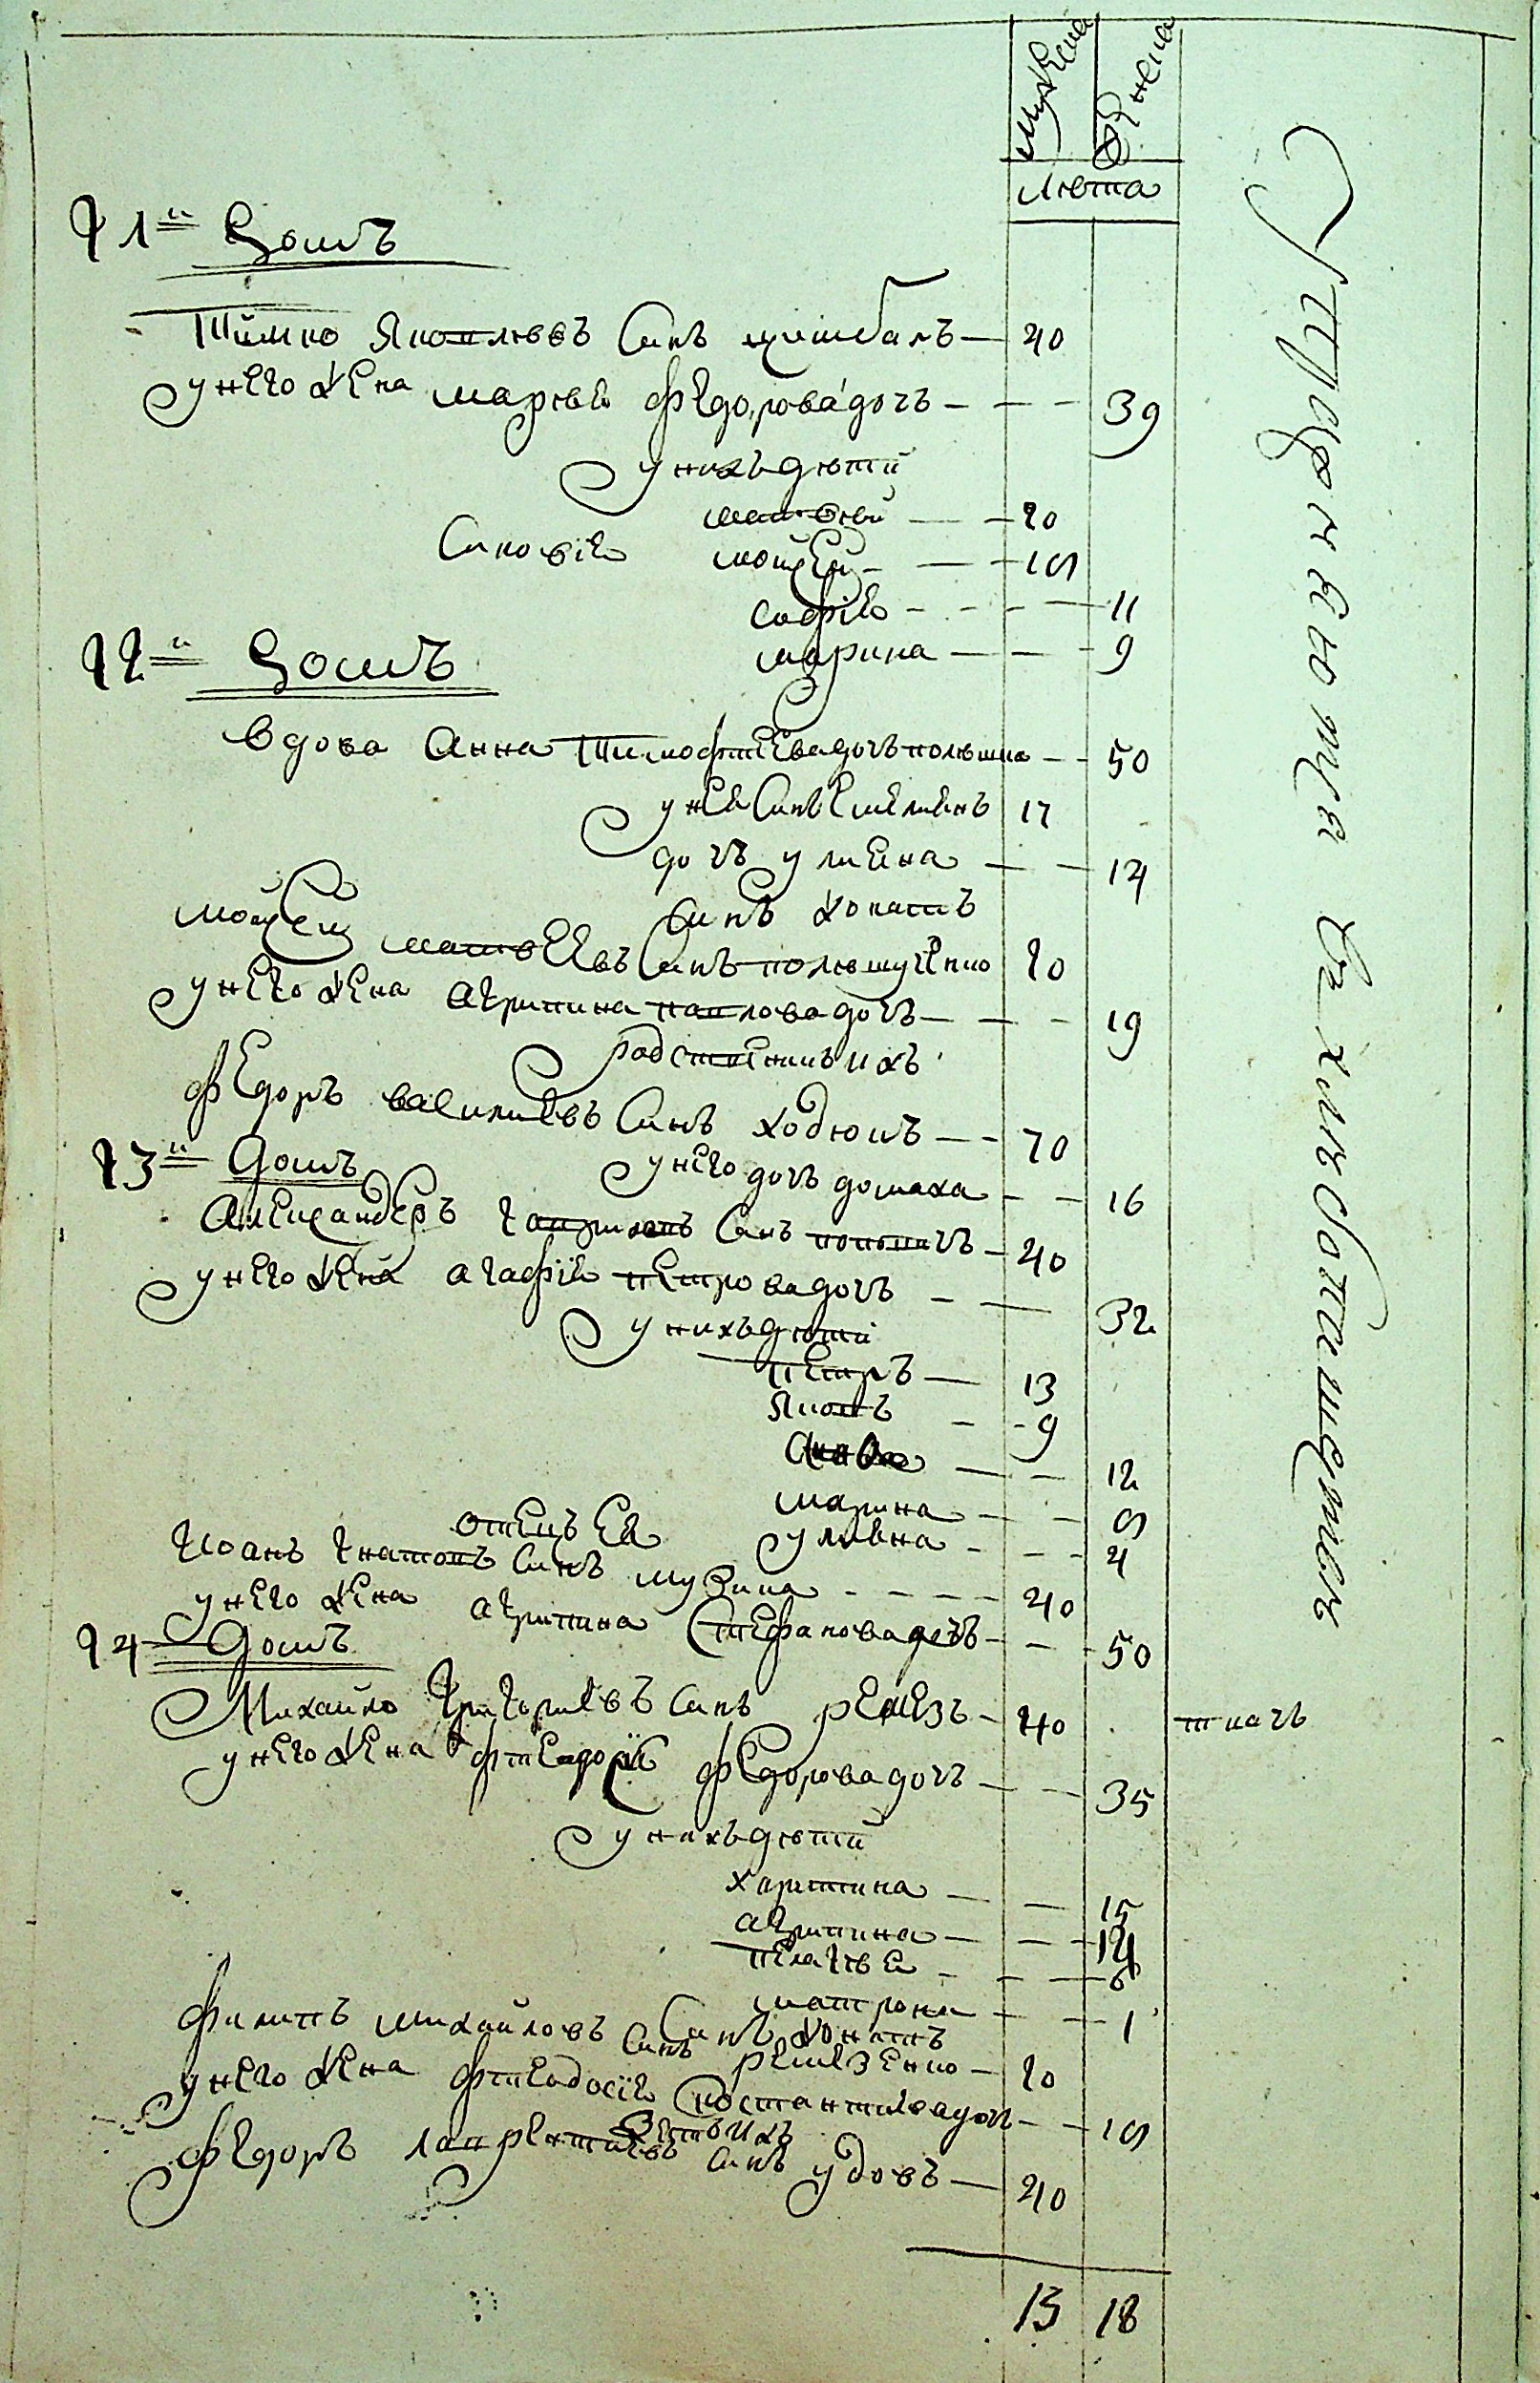 Мужеска
Женска
лѣта
21й Домъ
Тимко Яковлѣвъ Синъ цимбалъ — 40
у него жена маря федорова дочь — 39
у нихъ дѣтй
матвѣй — 20
Синовія мойсей — 19
софія — 11
марина — 9
22й Домъ
вдова Анна Тимофтеева дочь полѣшка — 50
у нея Синъ Емелиянъ 17
дочь улияна — 14
Синъ жонатъ
мойсей матвеевъ Синъ полѣшученко 20
у него жена агрипина павлова дочь — 19
родственикъ ихъ
федоръ василиевъ Синъ ходюкъ — 70
у него дочь домаха — 16
23й Домъ
Александеръ гавриловъ Синъ попович — 40
у него жена агафія петрова дочь — 32
у нихъ дѣтй
петръ — 13
яковъ — 9
Анна — 12
марина — 9
улияна — 4
отецъ Ея
Иоанъ игнатовъ Синъ музика — 40
у него жена агрипина Стефанова дочь — 50
24 Домъ
Михайло григориевъ Синъ ремезъ — 40 ткачъ
у него жена фтеодорія федорова дочь — 35
у нихъ дѣтй
харитина — 15
агрипина — 14
пелагѣя — 6
матрона — 1
Синъ жонатъ
филипъ михайловъ Синъ ремезенко — 20
у него жена фтеодосія Костантиева дочь — 19
Зять ихъ
федоръ лаврентиевъ Синъ удовъ — 40
13 18
Струденѣющуся въ хлѣбопашествѣ